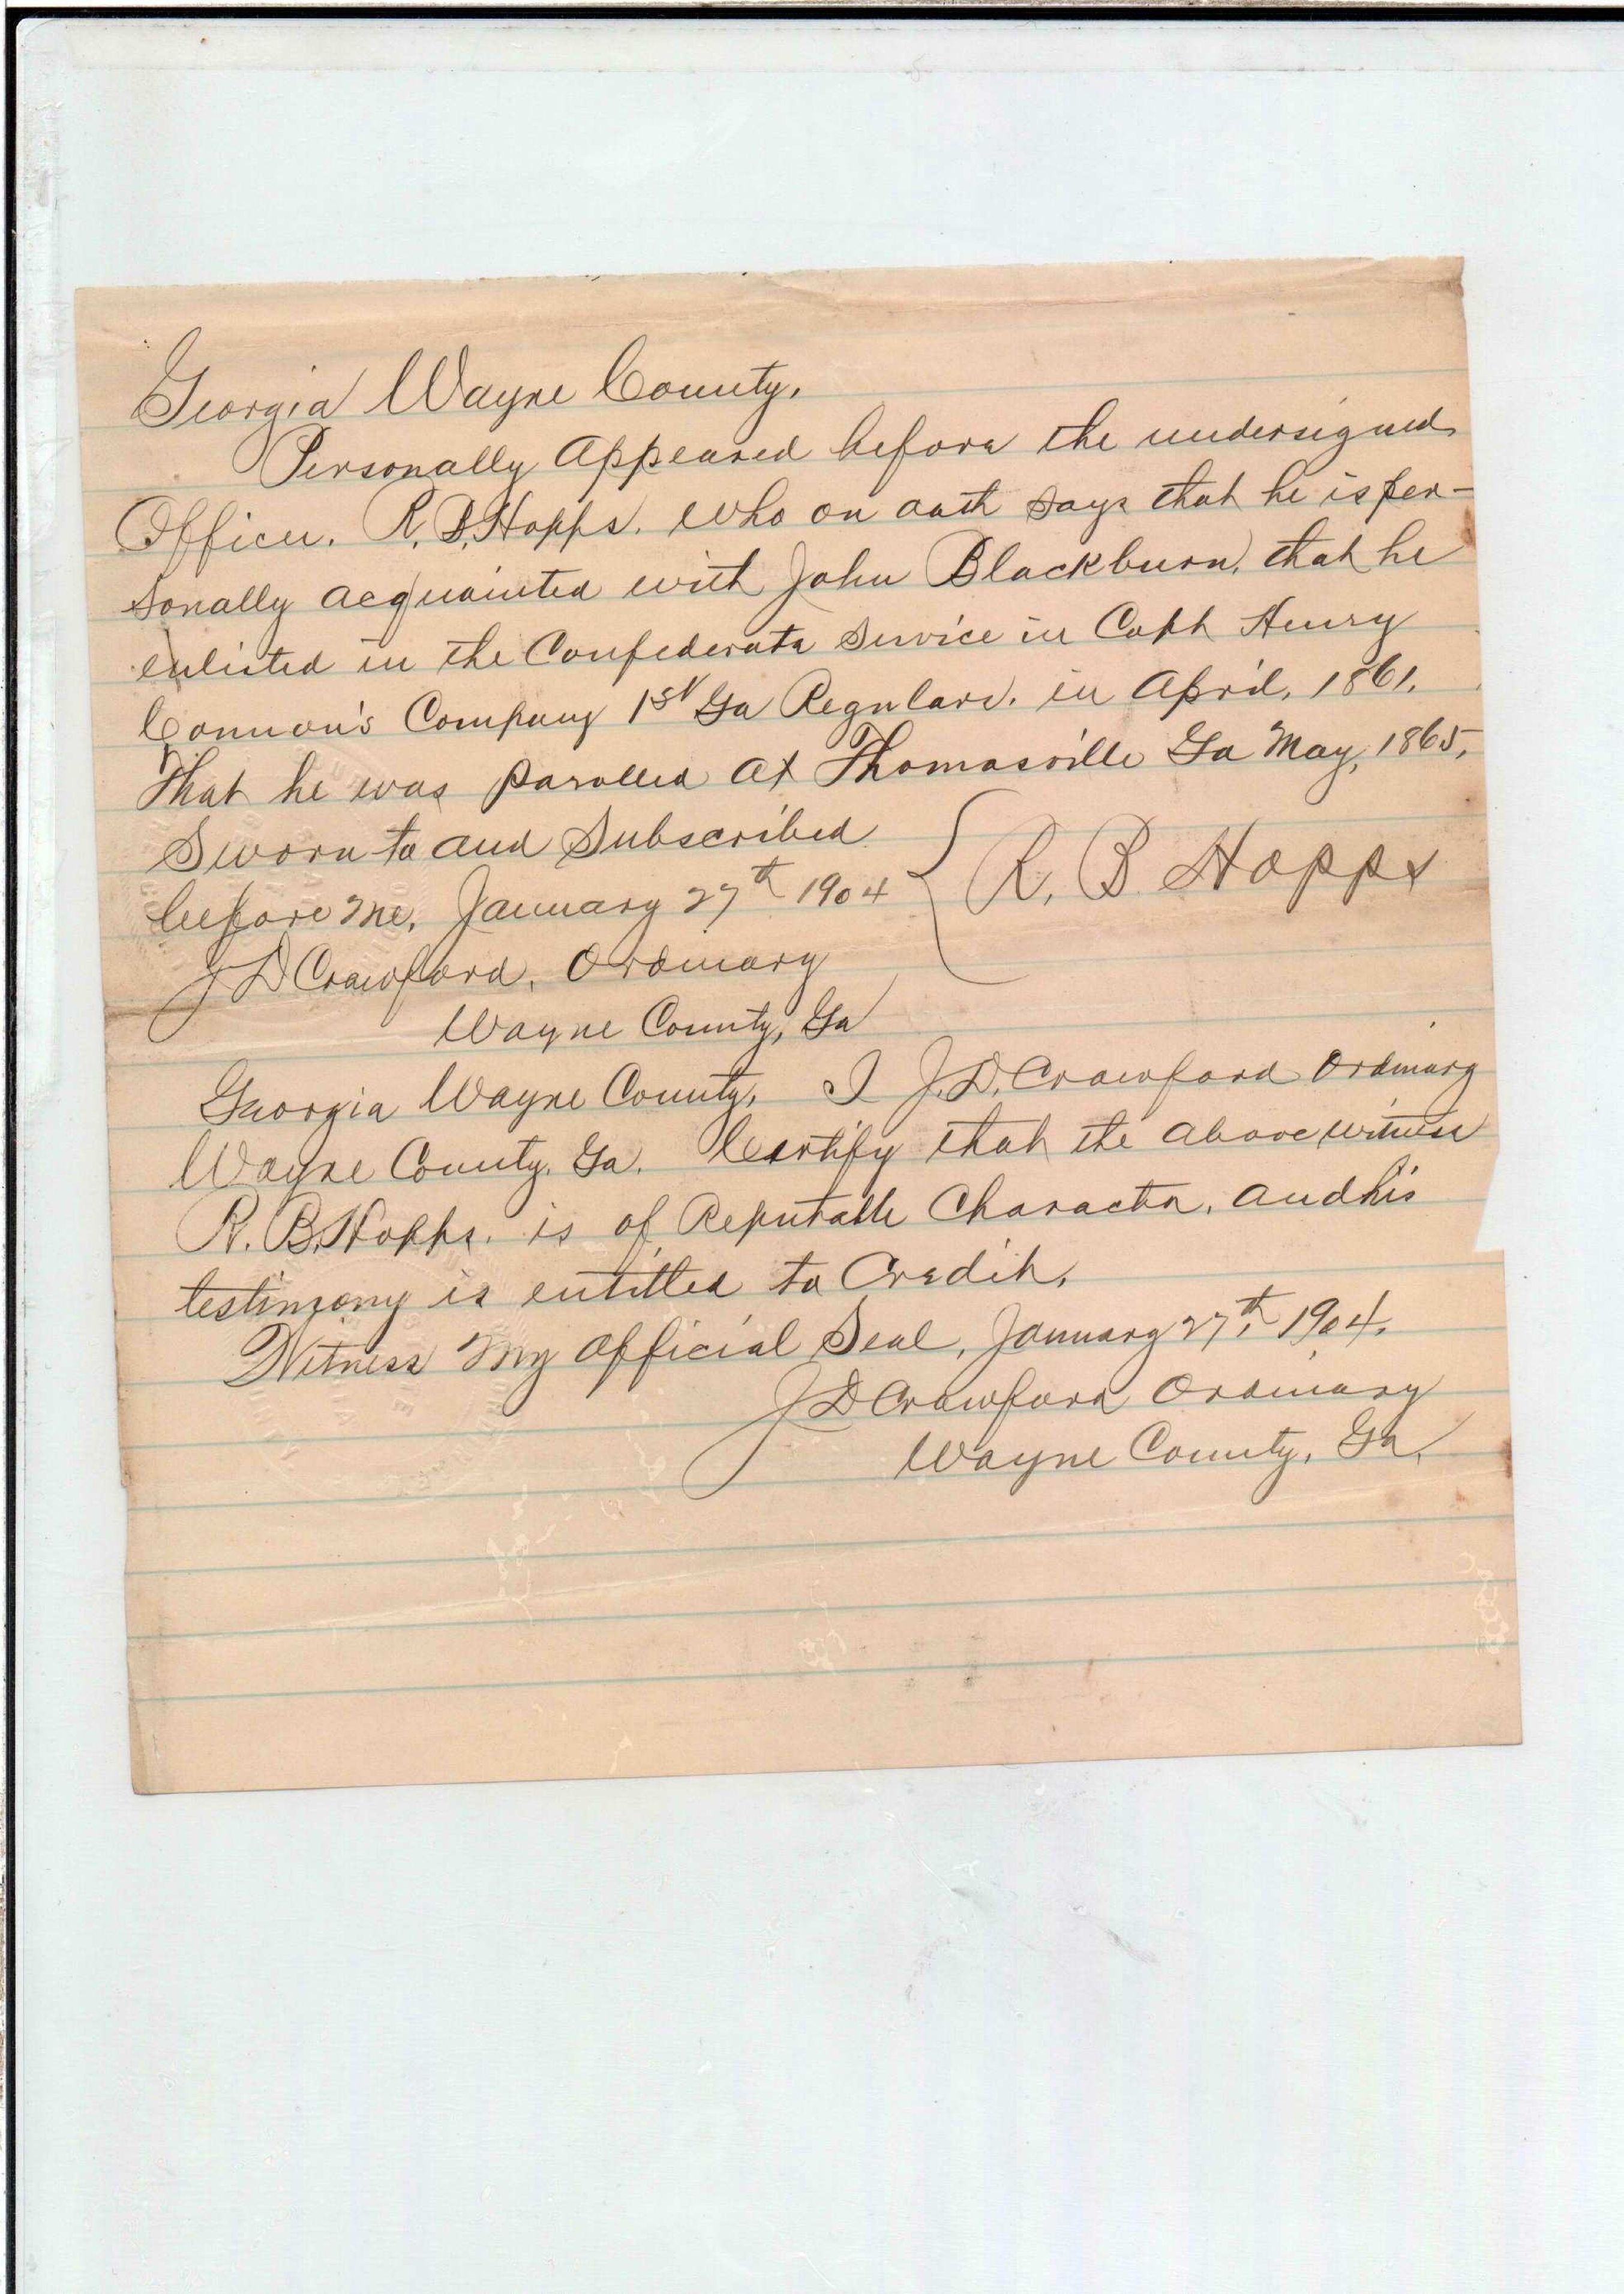 Georgia Wayne County.
Personally Appeared before the undersigned
Officer. R. B. Hopps. who on oath says that he is per-
sonally acquainted with John Blackburn, that he
enlisted in the Confederate Service in Capt Henry
Cannon's Company 1st Ga Regulars. in April, 1861.
That he was parolled at Thomasville Ga May, 1865,
Sworn to and Subscribed
before me, January 27th 1904 R. B. Hopps
J D Crawford, Ordinary
Wayne County, Ga
Georgia Wayne County, I J. D. Crawford Ordinary
Wayne County. Ga. Certify that the above witness
R. B. Hopps. is of Reputable Character, and his
testimony is entitled to Credit.
Witness my official Seal, January 27th, 1904.
J D Crawford Ordinary
Wayne County, Ga.